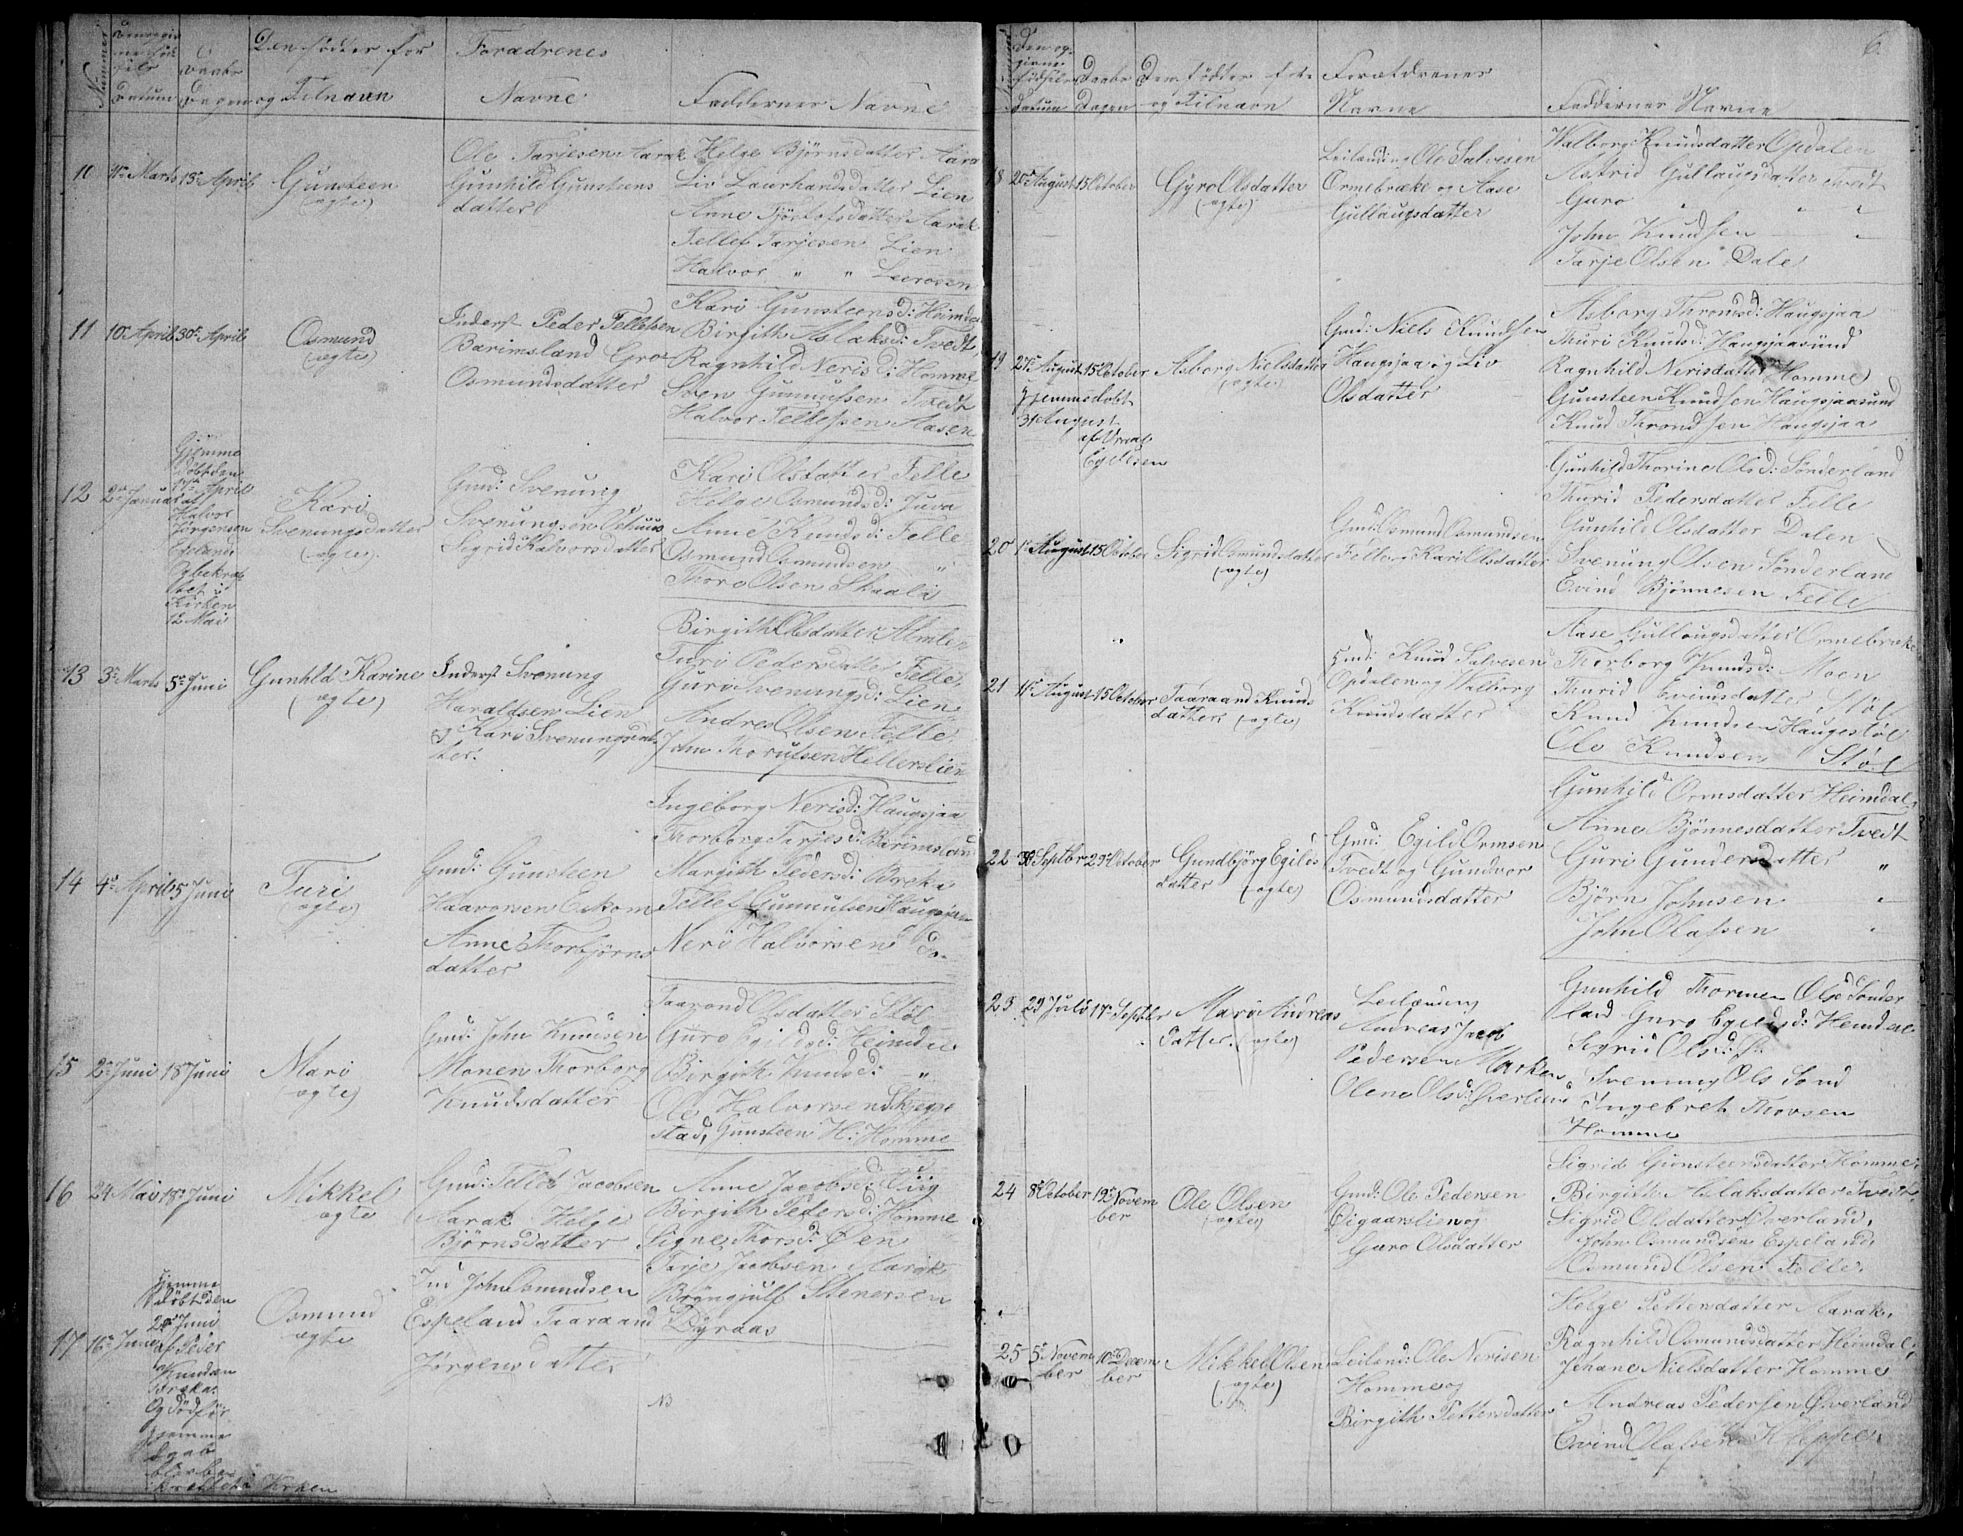 Nummer
Datum
Dagen
Den födter for
og Tilnavn
Forædrenes
Navne
Faddernes Navne
10
4de Marts
13de April
Gunsteen
(ægte)
Ole Tarjesen Aarak
Gunhild Gunsteens
datter
Helge Björnsdatter Aara
Liv Laurhandsdatter Lien
Anne Tjöstolsdatter Aarak
Tellef Tarjesen Lien
Halvor " " Leeroven
11
10de April
30te April
Osmund
(ægte)
Inderst Peder Tellefsen
Barimsland Gro
Osmundsdatter
Kari Gunsteensd: Heimdal
Birgith Aslaksd: Tvedt
Ragnhild Neris d: Homme
Sven Gunnufsen Tvedt
Halvor Tellefsen Aasen
12
2den Januar
Gjemme
döbt den
17de April
af
Halvor
Jörgensen
Espeland
Og bekræf
tet i
Kirken
12 Mai
Kari
Svenungsdatter
(ægte)
Gmd: Svenung
Svenungsen
Sigrid Halvorsdatter
Kari Olsdatter Felle
Helge Osmundsd: Juva
Anne Knudsd: Felle
Osmund Osmundsen "
Thore Olsen Skaali
13
3de Marts
5te Juni
Gunhld Karine
(ægte)
Inderst Svenung
Haraldsen Lien
og Kari Svenungsdat
ter.
Birgith Olsdatter
Turi Pedersdatter Felle
Guri Svenungsd: Lien
Andres Olsen Felle
John Thorufsen Hellerslien
14
4de April
5 Juni
Turi
(ægte)
Gmd: Gunsteen
Haavorsen Eskom
Anne Thorbjörns
datter
Ingeborg Nerisd: Haugsjaa
Thorborg Tarjesd: Barimsland
Margith Pedersd: Bræka
Tellef Gunnufsen Haugsjaa
Neri Halvorsen Do.
15
2den Juni
18 Juni
Mari
(ægte)
Gmd: John Knudsen
Monen Thorborg
Knudsdatter
Taarond Olsdatter Stöl
Guro Egildsd: Heimdal
Birgith Knudsd: "
Ole Halvorsen Skjegge
stad, Gunsteen H: Homme
16
24 Mai
18de Juni
Mikkel
ægte
Gmd: Tellef Jacobsen
Aarak Helge
Björnsdatter
Anne Jacobsd:
Birgith Pedersd: Homme
Signe Thorsd: Öen
Tarje Jacobsen Aarak
Bryngjulf Stenersen
Dyraas
17
16de Juni
Hjemme
döbt den
20de Juni
af Peder
Knudsen
Bræka
Og död för
hjemme
daab
blev be
kræftet i Kirken
Osmund
ægte
Ind John Osmundsen
Espeland Taaraand
Jörgensdatter
NB
6.
födsels
Datum
Daabs
Dagen
Den födter for
og Tilnavn
Forældrenes
Navne
Faddernes Navne
18
20de August
15 October
Gyro Olsdatter
(ægte)
Leilænding Ole Salvesen
Ormebræke og Aase
Gullaugsdatter
Walborg Knudsdatter Opdalen
Astrid Gullaugsdatter Tvedt
Guro " " "
John Knudsen "
Tarje Olsen Dale
19
27de August
15 October
Hjemmedobt
31 August
af Unnal
Egildsen
Asborg Nielsdatter
(ægte)
Gmd: Niels Knudsen
Haugsjaa og Liv
Olsdatter
Asborg Thronsd: Haugsjaa
Thuri Knudsd: Haugsjaasund
Ragnhild Nerisdatter Homme
Gunsteen Knudsen Haugsjaasund
Knud Throndsen Haugsjaa
20
1te August
15 October
Sigrid Osmundsdatter
(ægte)
Gmd: Osmund Osmundsen
Felle og Kari Olsdatter
Gunhild Thorine Olsd: Sönderland
Thurid Pedersdatter Felle
Gunhild Olsdatter Dalen
Svenung Olsen Sönderland
Evind Bjönnesen Felle
21
11te August
15 October
Taaraand Knuds
datter (ægte)
Gmd: Knud Salvesen
Opdalen og Walborg
Knudsdatter
Aase Gullougsdatter Ormebræke
Thorborg Knudsd: Moen
Thurid Evindsdatter Stöl
Knud Knudsen Haugestöl
Ole Knudsen Stöl
22
30 Septbr
29de October
Gundbjörg Egilds
datter (ægte)
Gmd: Egild Ormsen
Tvedt og Gundvor
Osmundsdatter
Gunhild Ormsdatter Heimdal
Anne Bjönnesdatter Tvedt
Guri Gundersdatter "
Björn Johnsen "
John Olafsen "
23
29 Juli
17de Septbr
Mari Andreas
datter. (ægte)
Leilænding
Andreas Jacob
Pedersen Marken
Olene Olsd: Överland
Gunhild Thorine Olsd Sönder
land Guro Egildsd: Heimdal
Sigrid Olsd: S:
Svenung Ols Sönd
Ingebret Thorsen
Homme
24
8de October
19de Novem
ber
Ole Olsen
(ægte)
Gmd: Ole Pedersen
Öigaarslien og
Guro Olsdatter
Sigrid Gunsteensdatter Homme,
Birgith Aslaksdatter Tvedt,
Sigrid Olsdatter Överland,
John Osmundsen Espeland,
Osmund Olsen Felle.
25
5te Novem
ber
10de Decem
ber
Mikkel Olsen
(ægte)
Leiland: Ole Nerisen
Homme og
Birgith Pettersdatter
Helge Pettersdatter Aarak,
Ragnhild Osmundsdatter Heimdal,
Johane Nielsdatter Homme
Andreas Pedersen Överland
Evind Olafsen Kleppe